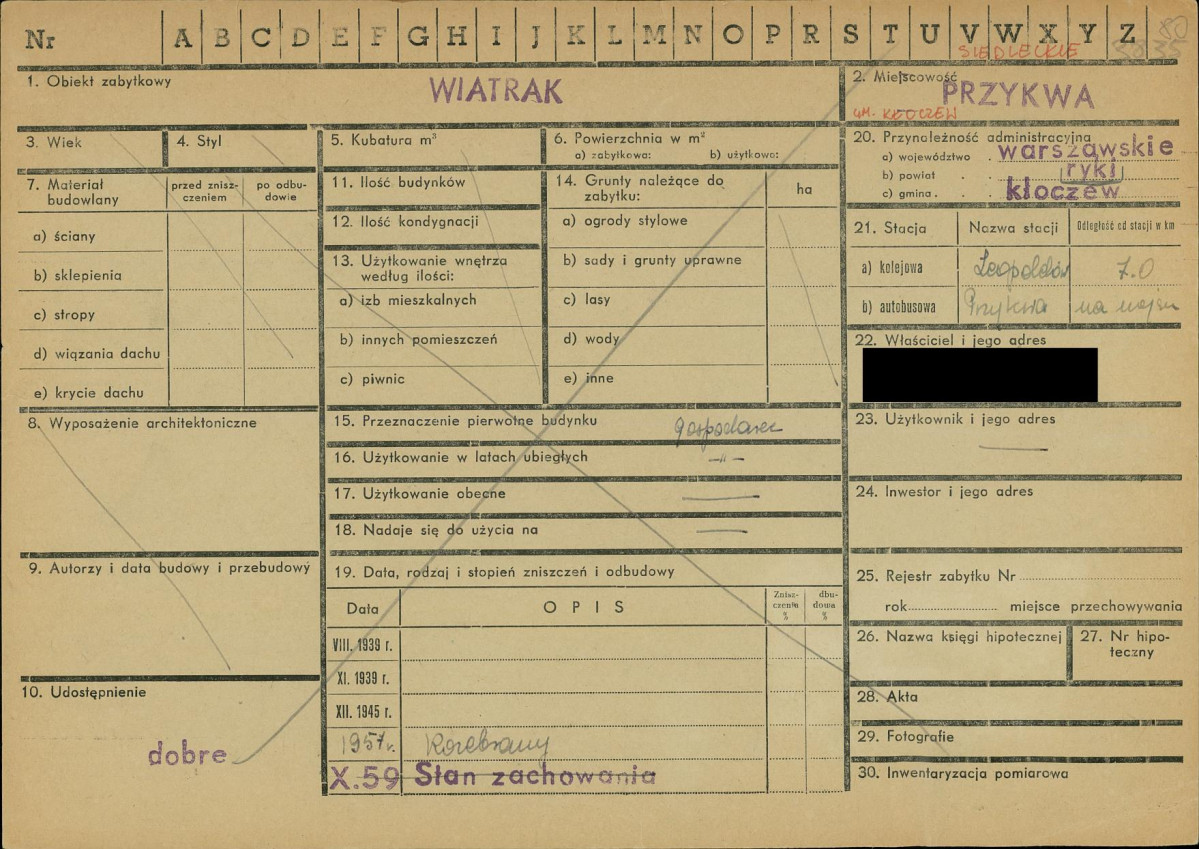 Nr A B C D E F G H I J K L M N O P R S T U V W X Y Z 80
SIEDLECKIE
1. Obiekt zabytkowy
WIATRAK
2. Miejscowość
PRZYKWA
GM. KŁOCZEW
3. Wiek
4. Styl
5. Kubatura m³
6. Powierzchnia w m²
a) zabytkowa: b) użytkowa:
7. Materiał budowlany
przed znisz-
czeniem
po odbu-
dowie
a) ściany
b) sklepienia
c) stropy
d) wiązania dachu
e) krycie dachu
8. Wyposażenie architektoniczne
9. Autorzy i data budowy i przebudowy
10. Udostępnienie
dobre
11. Ilość budynków
12. Ilość kondygnacji
13. Użytkowanie wnętrza
według ilości:
a) izb mieszkalnych
b) innych pomieszczeń
c) piwnic
14. Grunty należące do
zabytku:
ha
a) ogrody stylowe
b) sady i grunty uprawne
c) lasy
d) wody
e) inne
15. Przeznaczenie pierwotne budynku
16. Użytkowanie w latach ubiegłych -"-
17. Użytkowanie obecne
18. Nadaje się do użycia na
19. Data, rodzaj i stopień zniszczeń i odbudowy
Data
OPIS
Znisz-
czenia
%
dbu-
dowa
%
VIII. 1939 r.
XI. 1939 r.
XII. 1945 r.
1957 r. Rozebrany
X.59 Stan zachowania
20. Przynależność administracyjna
a) województwo warszawskie
b) powiat ryki
c) gmina kłoczew
21. Stacja
Nazwa stacji
Odległość od stacji w km
a) kolejowa Leopoldów 7.0
b) autobusowa Przykwa na miejscu
22. Właściciel i jego adres
23. Użytkownik i jego adres
24. Inwestor i jego adres
25. Rejestr zabytku Nr
rok miejsce przechowywania
26. Nazwa księgi hipotecznej
27. Nr hipo-
teczny
28. Akta
29. Fotografie
30. Inwentaryzacja pomiarowa